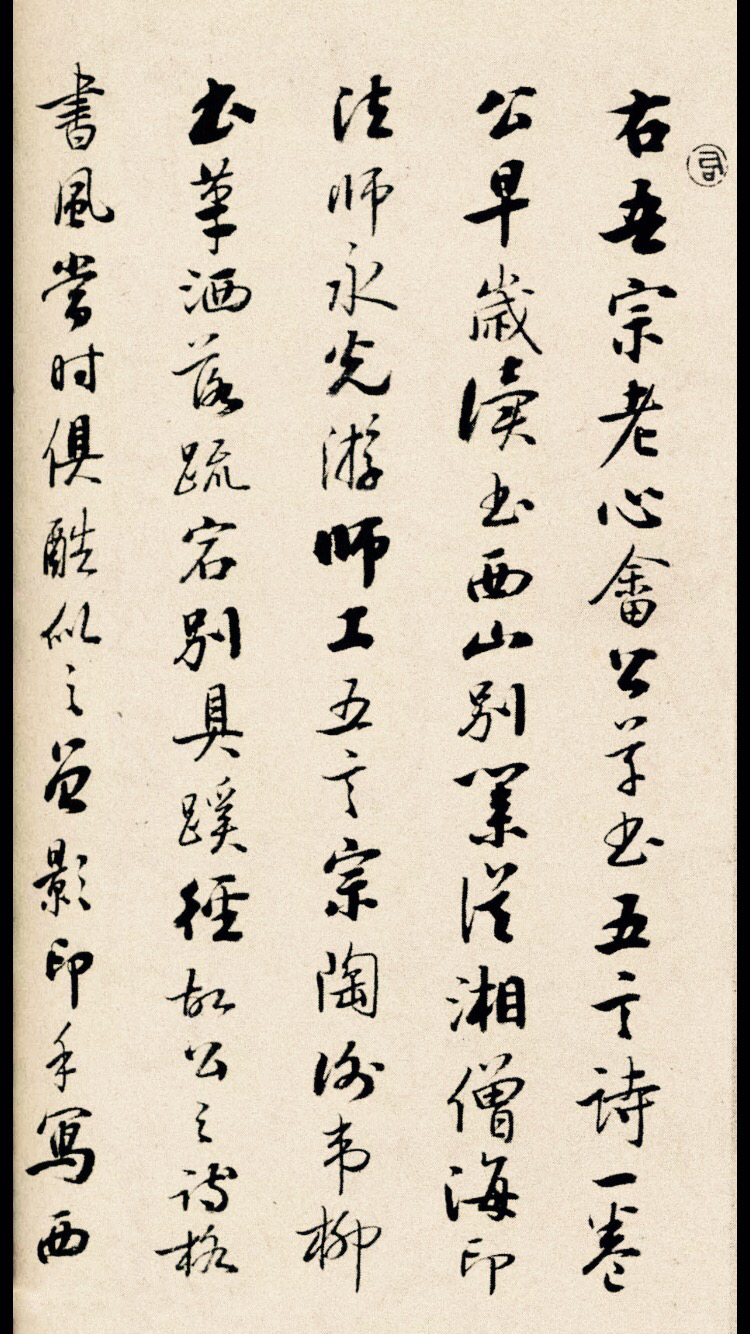 右吾宗老心畬公草书五言詩一卷
公早歲讀书西山别業從湘僧海印
法師永光游師工五言宗陶謝韦柳
书筆洒落疏宕别具蹊徑故公之詩格
書風當时俱酷似之曾影印手寫西